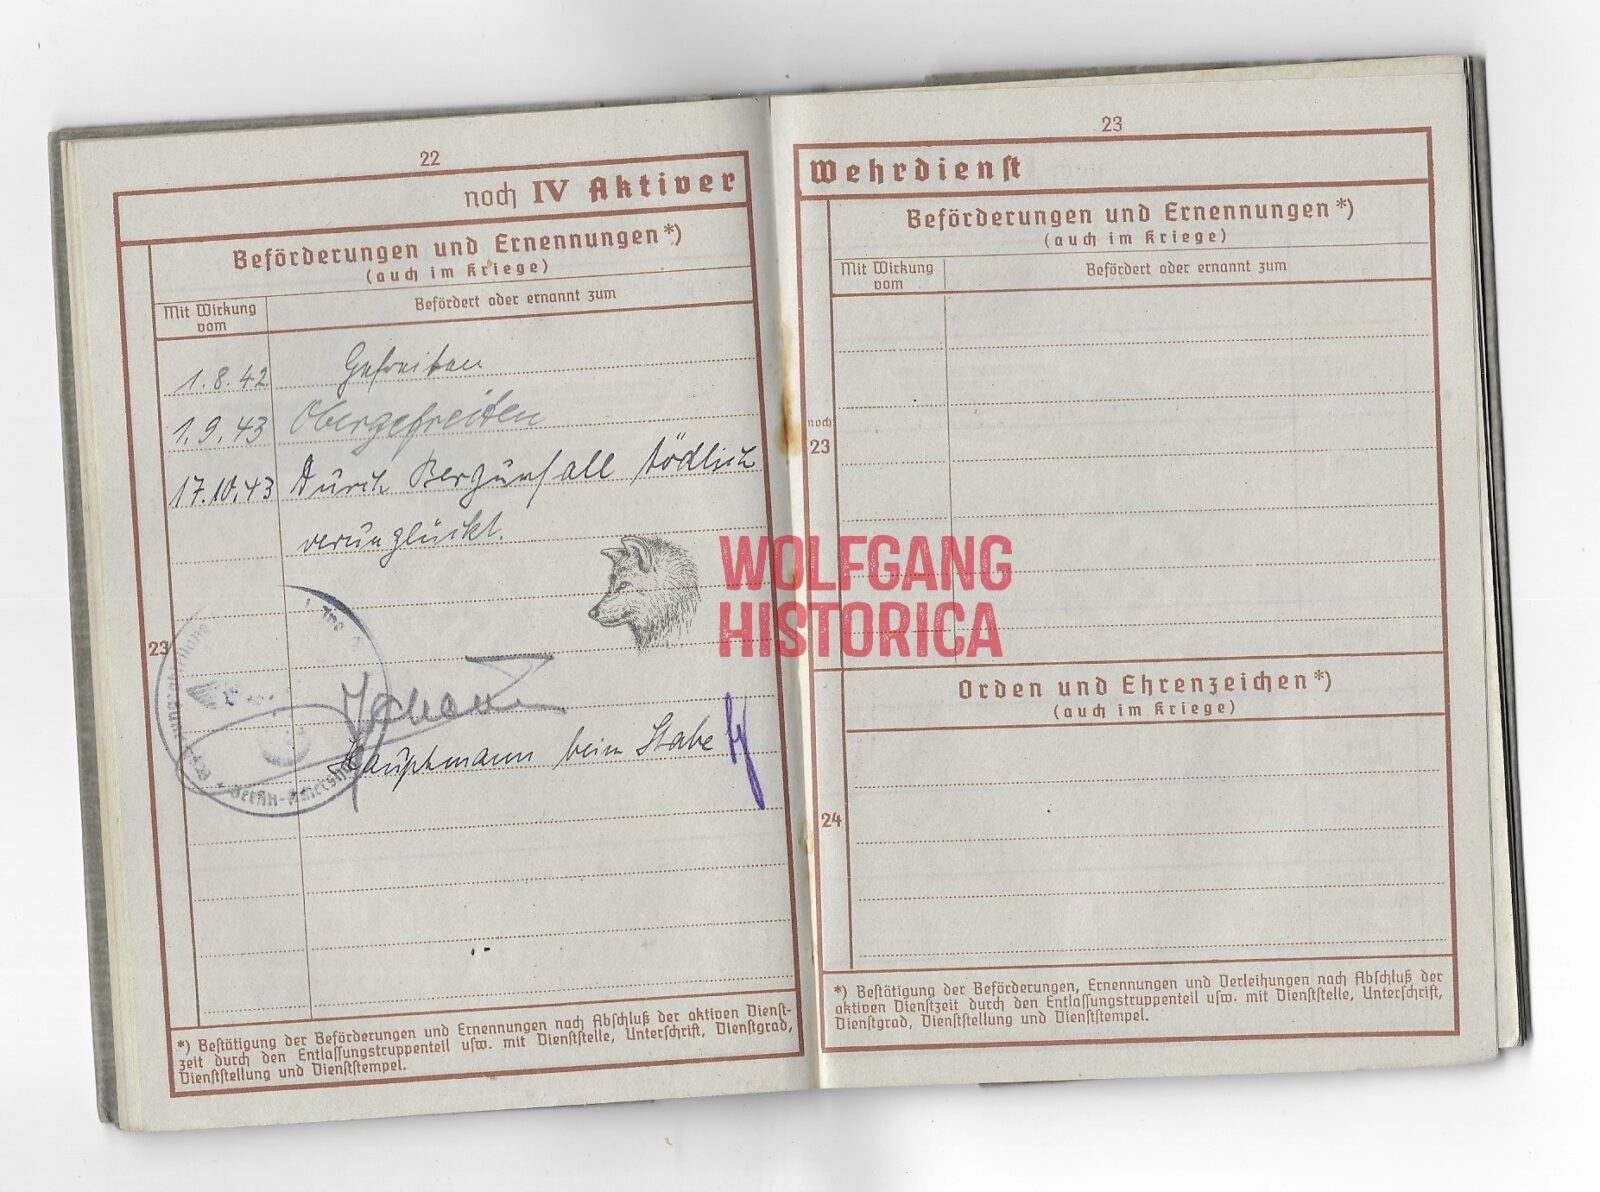 22
noch IV Aktiver
Beförderungen und Ernennungen*)
(auch im Kriege)
Mit Wirkung vom
Befördert oder ernannt zum
1.8.42 Gefreiten
1.9.43 Obergefreiten
17.10.43 Durch Bergunfall tödlich
verunglückt.
23
Hauptmann beim Stabe
Berlin-Adlershof
*) Bestätigung der Beförderungen und Ernennungen nach Abschluß der aktiven Dienst-
zeit durch den Entlassungstruppenteil usw. mit Dienststelle, Unterschrift, Dienstgrad,
Dienststellung und Dienststempel.
23
Wehrdienst
Beförderungen und Ernennungen*)
(auch im Kriege)
Mit Wirkung vom
Befördert oder ernannt zum
noch
23
Orden und Ehrenzeichen*)
(auch im Kriege)
24
*) Bestätigung der Beförderungen, Ernennungen und Verleihungen nach Abschluß der
aktiven Dienstzeit durch den Entlassungstruppenteil usw. mit Dienststelle, Unterschrift,
Dienstgrad, Dienststellung und Dienststempel.
WOLFGANG
HISTORICA